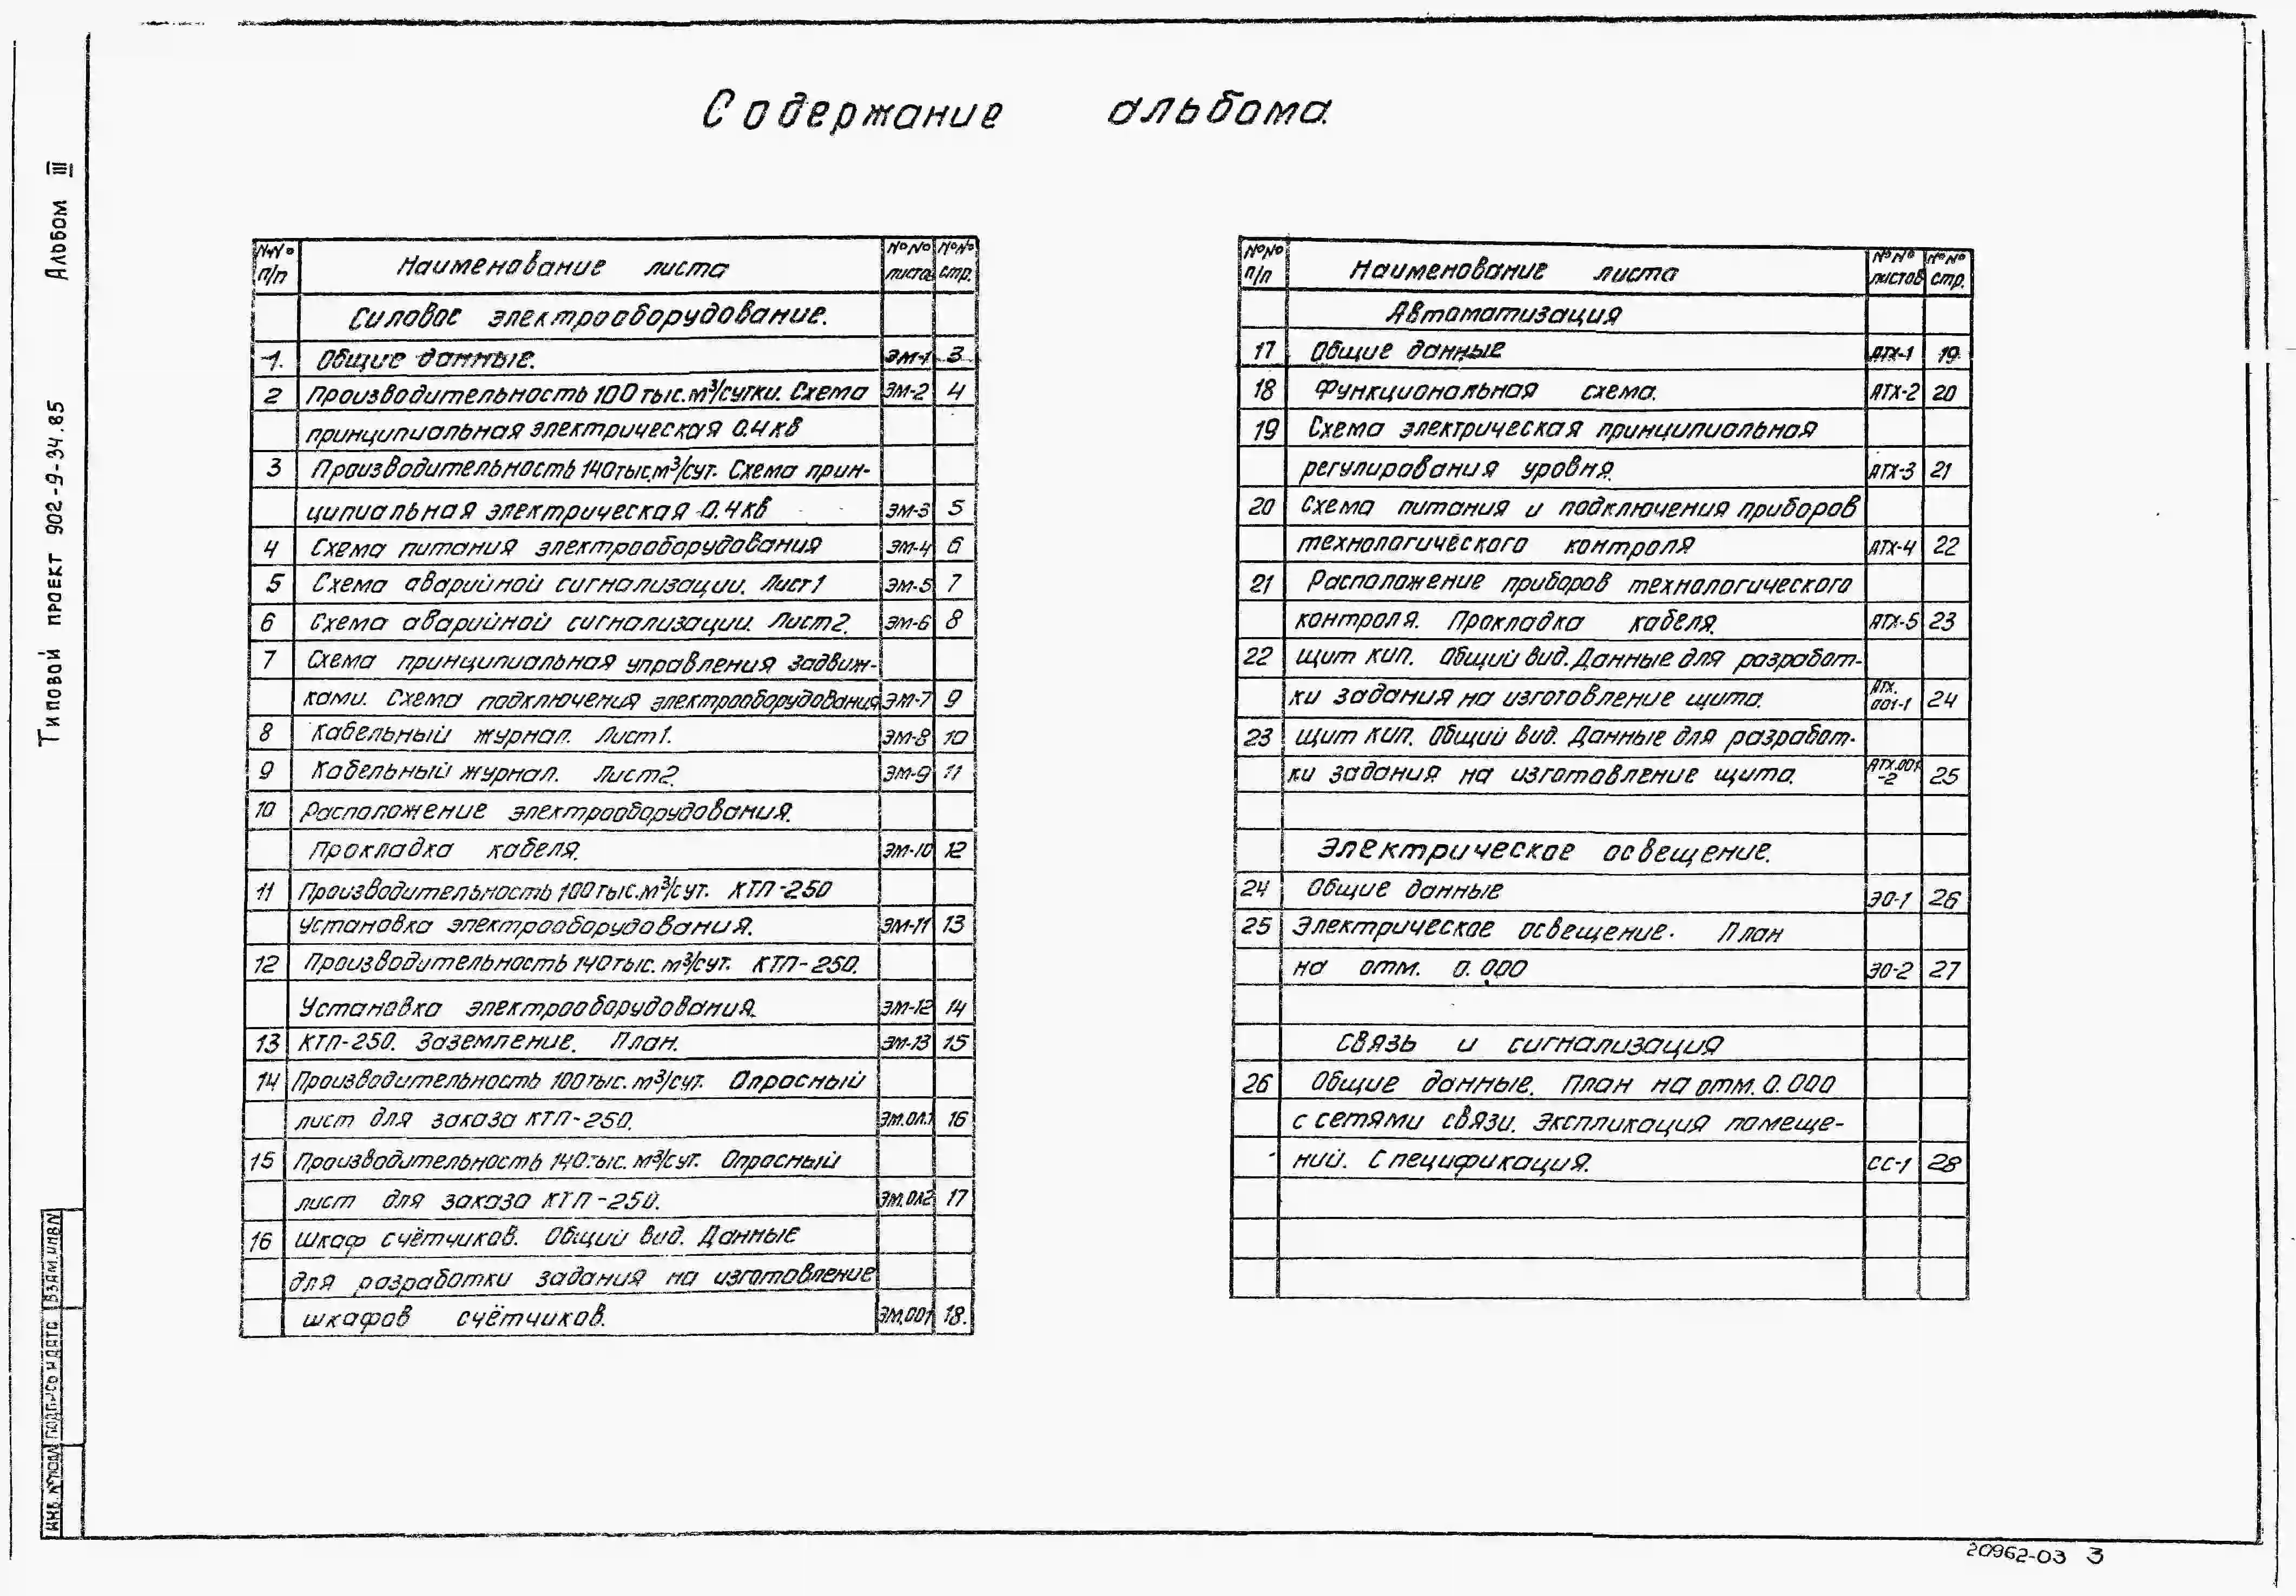 Содержание альбома.
Альбом III
Типовой проект 902-9-34.85
№№ п/п Наименование листа №№ листа №№ стр.
Силовое электрооборудование.
1. Общие данные. ЭМ-1 3
2 Производительность 100 тыс. м³/сутки. Схема ЭМ-2 4
принципиальная электрическая 0.4 кв
3 Производительность 140 тыс. м³/сут. Схема прин-
ципиальная электрическая 0.4 кв ЭМ-3 5
4 Схема питания электрооборудования ЭМ-4 6
5 Схема аварийной сигнализации. Лист 1 ЭМ-5 7
6 Схема аварийной сигнализации. Лист 2. ЭМ-6 8
7 Схема принципиальная управления задвиж-
ками. Схема подключения электрооборудования ЭМ-7 9
8 Кабельный журнал. Лист 1. ЭМ-8 10
9 Кабельный журнал. Лист 2. ЭМ-9 11
10 Расположение электрооборудования.
Прокладка кабеля. ЭМ-10 12
11 Производительность 100 тыс. м³/сут. КТП-250
Установка электрооборудования. ЭМ-11 13
12 Производительность 140 тыс. м³/сут. КТП-250.
Установка электрооборудования. ЭМ-12 14
13 КТП-250. Заземление. План. ЭМ-13 15
14 Производительность 100 тыс. м³/сут. Опросный
лист для заказа КТП-250. ЭМ.ОЛ.1 16
15 Производительность 140 тыс. м³/сут. Опросный
лист для заказа КТП-250. ЭМ.ОЛ2 17
16 Шкаф счётчиков. Общий вид. Данные
для разработки задания на изготовление
шкафов счётчиков. ЭМ.001 18.
№№ п/п Наименование листа №№ листов №№ стр.
Автоматизация
17 Общие данные АТХ-1 19
18 Функциональная схема. АТХ-2 20
19 Схема электрическая принципиальная
регулирования уровня. АТХ-3 21
20 Схема питания и подключения приборов
технологического контроля АТХ-4 22
21 Расположение приборов технологического
контроля. Прокладка кабеля. АТХ-5 23
22 Щит КИП. Общий вид. Данные для разработ-
ки задания на изготовление щита. АТХ. 001-1 24
23 Щит КИП. Общий вид. Данные для разработ-
ки задания на изготовление щита. АТХ.001 -2 25
Электрическое освещение.
24 Общие данные ЭО-1 26
25 Электрическое освещение. План
на отм. 0.000 ЭО-2 27
Связь и сигнализация
26 Общие данные. План на отм. 0.000
с сетями связи. Экспликация помеще-
ний. Спецификация. СС-1 28
Инв. № подл Подпись и дата Взам.инв№
20962-03 3